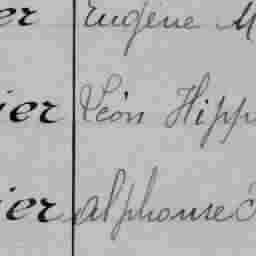 er Eugène M
ier Léon Hipp
ier Alphonse